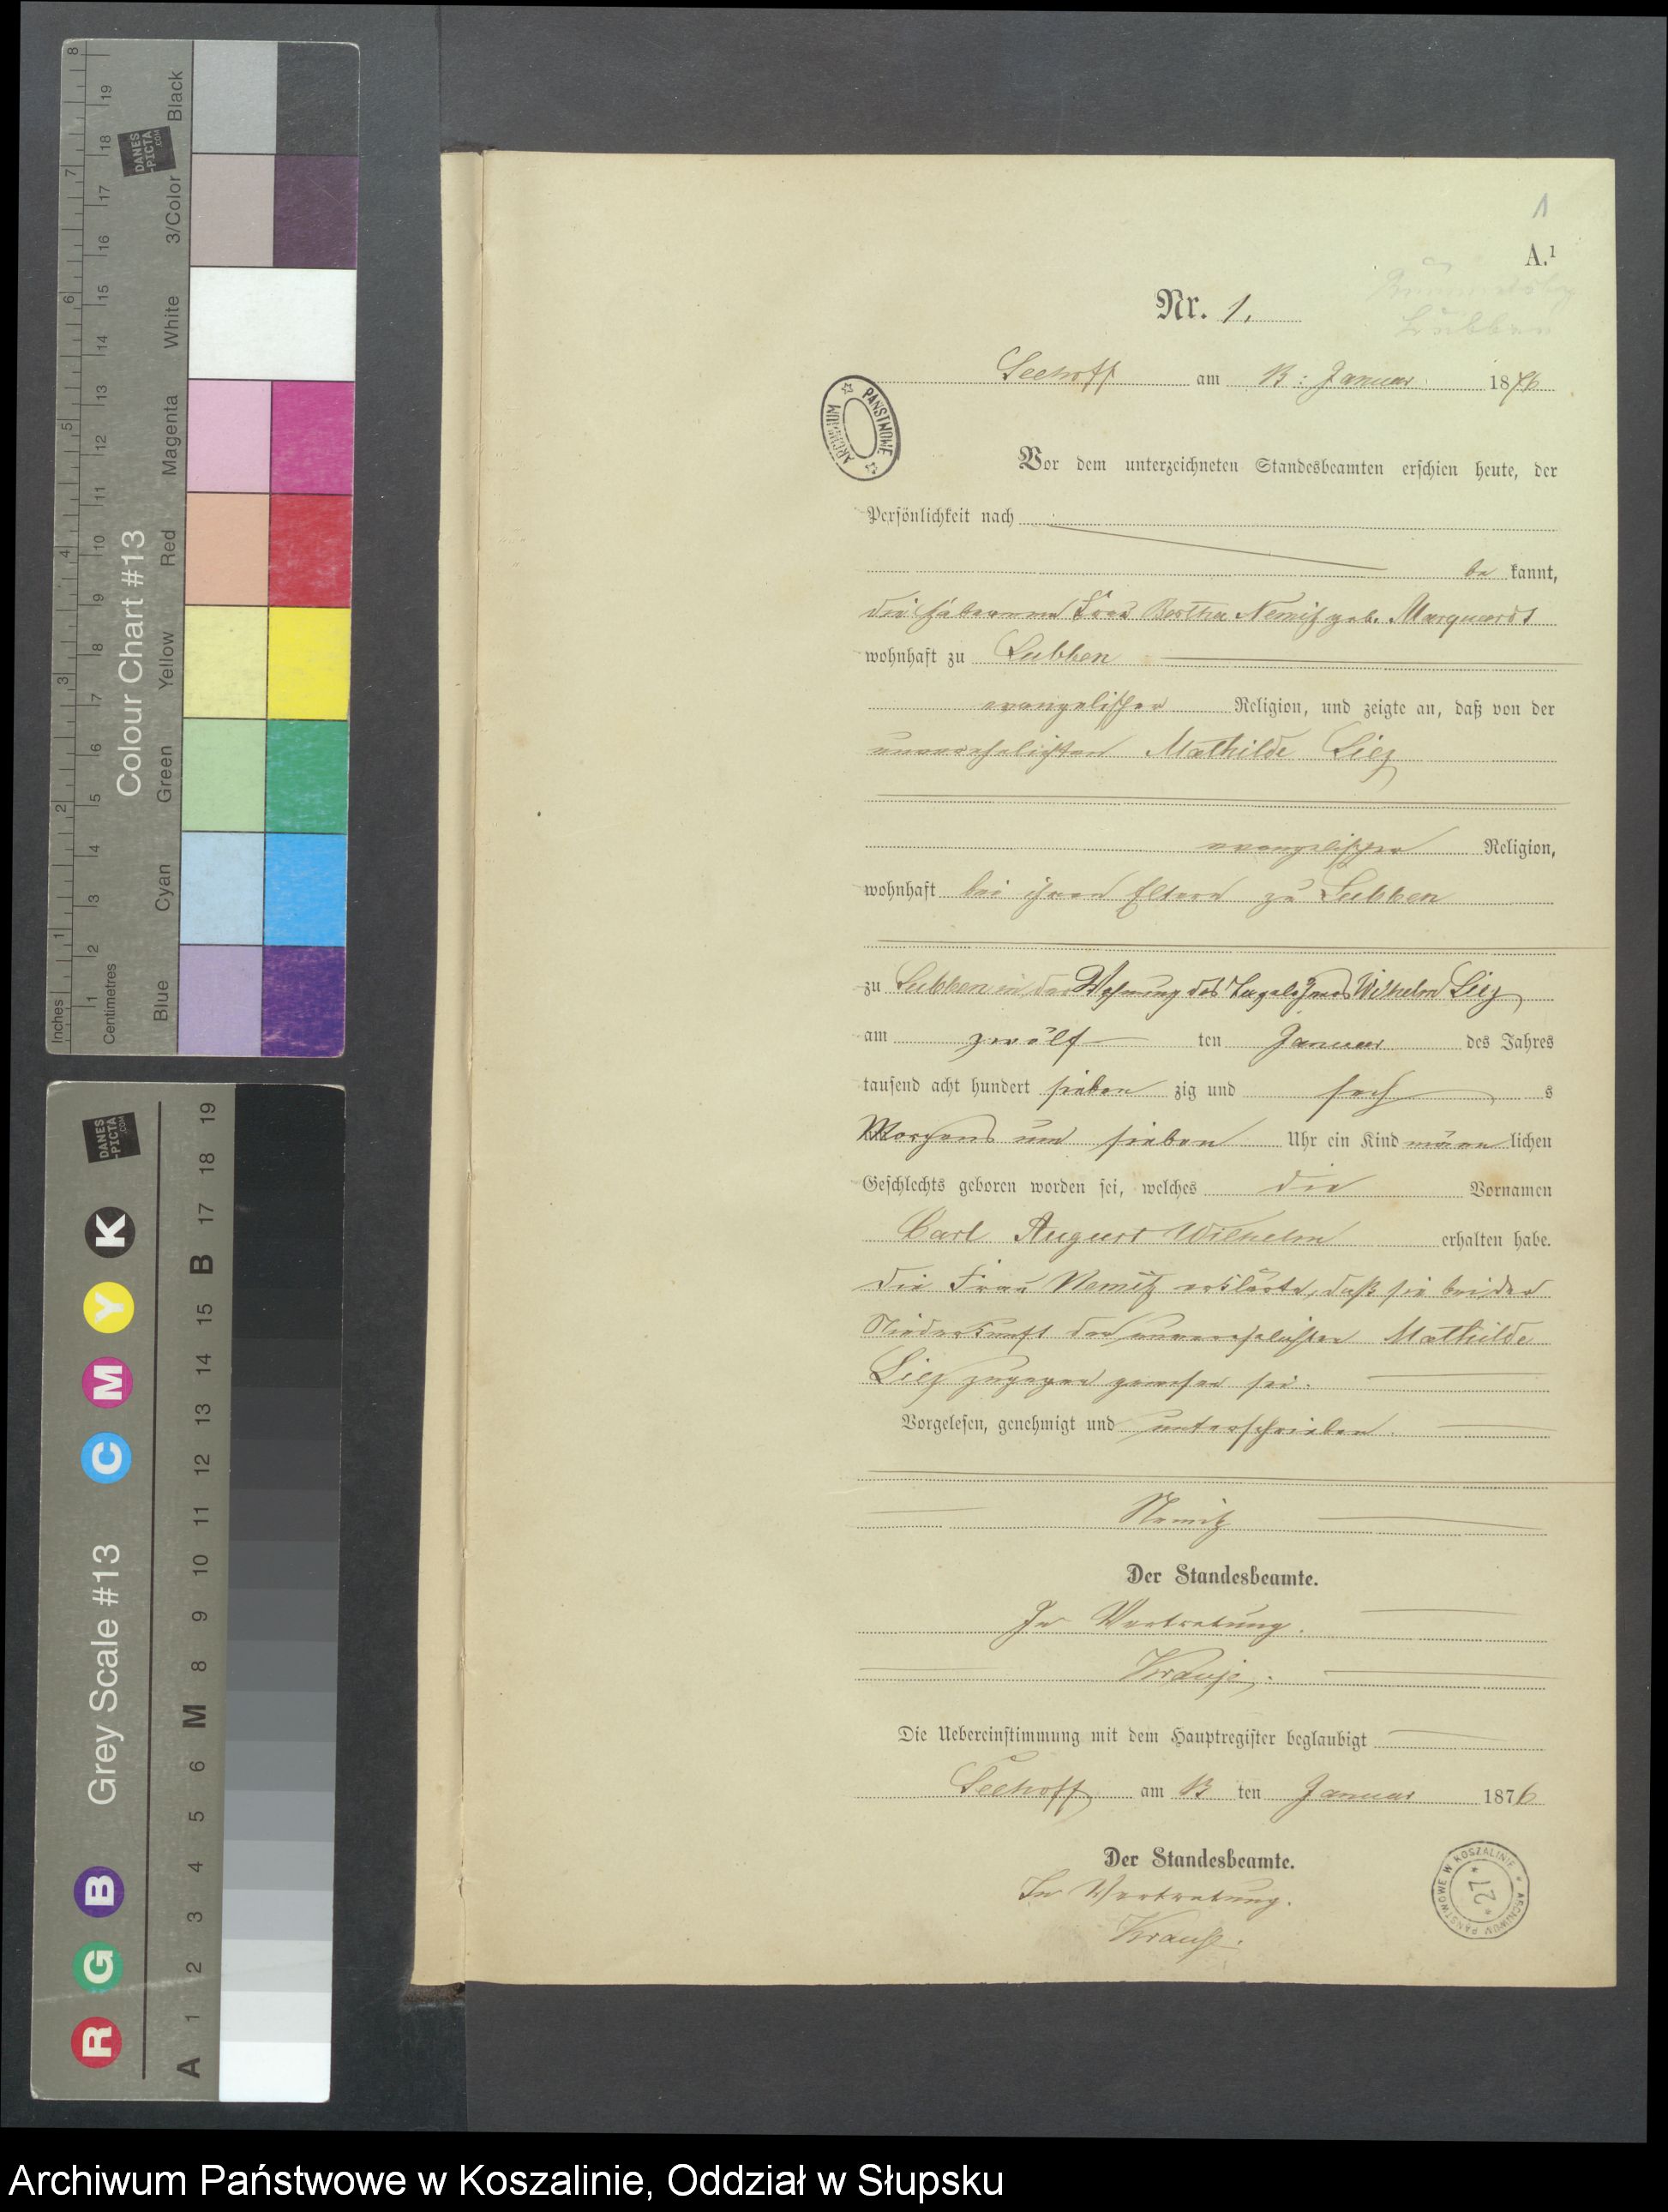 8
7
6
5
4
3
2
1
Inches
19
18
17
16
15
14
13
12
11
10
9
8
7
6
5
4
3
2
1
Centimetres
Colour Chart #13
Black
3/Color
White
Magenta
Red
Yellow
Green
Cyan
Blue
DANES
-PICTA
.COM
DANES
-PICTA
.COM
Grey Scale #13
R G B C M Y K
A 1 2 3 4 5 6 M 8 9 10 11 12 13 14 15 B 17 18 19
1
A.¹
Lubben
Nr. 1.
Seehoff am 13: Januar 1876
ARCHIWUM PAŃSTWOWE
Vor dem unterzeichneten Standesbeamten erschien heute, der
Persönlichkeit nach
be kannt,
die Hebamme Frau Bertha Nemitz geb. Marquardt
wohnhaft zu Lubben
evangelischer Religion, und zeigte an, daß von der
unverehelichten Mathilde Liez
evangelischer Religion,
wohnhaft bei ihren Eltern zu Lubben
zu Lubben in der Wohnung des Tagelöhners Wilhelm Liez
am zwölf ten Januar des Jahres
tausend acht hundert sieben zig und sech s
Morgens um sieben Uhr ein Kind männ lichen
Geschlechts geboren worden sei, welches die Vornamen
Carl August Wilhelm erhalten habe.
Die Frau Nemitz erklärte, daß sie bei der
Niederkunft der unverehelichten Mathilde
Liez zugegen gewesen sei.
Vorgelesen, genehmigt und unterschrieben.
Nemitz
Der Standesbeamte.
In Vertretung.
Krause.
Die Uebereinstimmung mit dem Hauptregister beglaubigt
Seehoff am 13 ten Januar 1876
Der Standesbeamte.
In Vertretung.
Krause.
ARCHIWUM PAŃSTWOWE W KOSZALINIE
* 27 *
Archiwum Państwowe w Koszalinie, Oddział w Słupsku